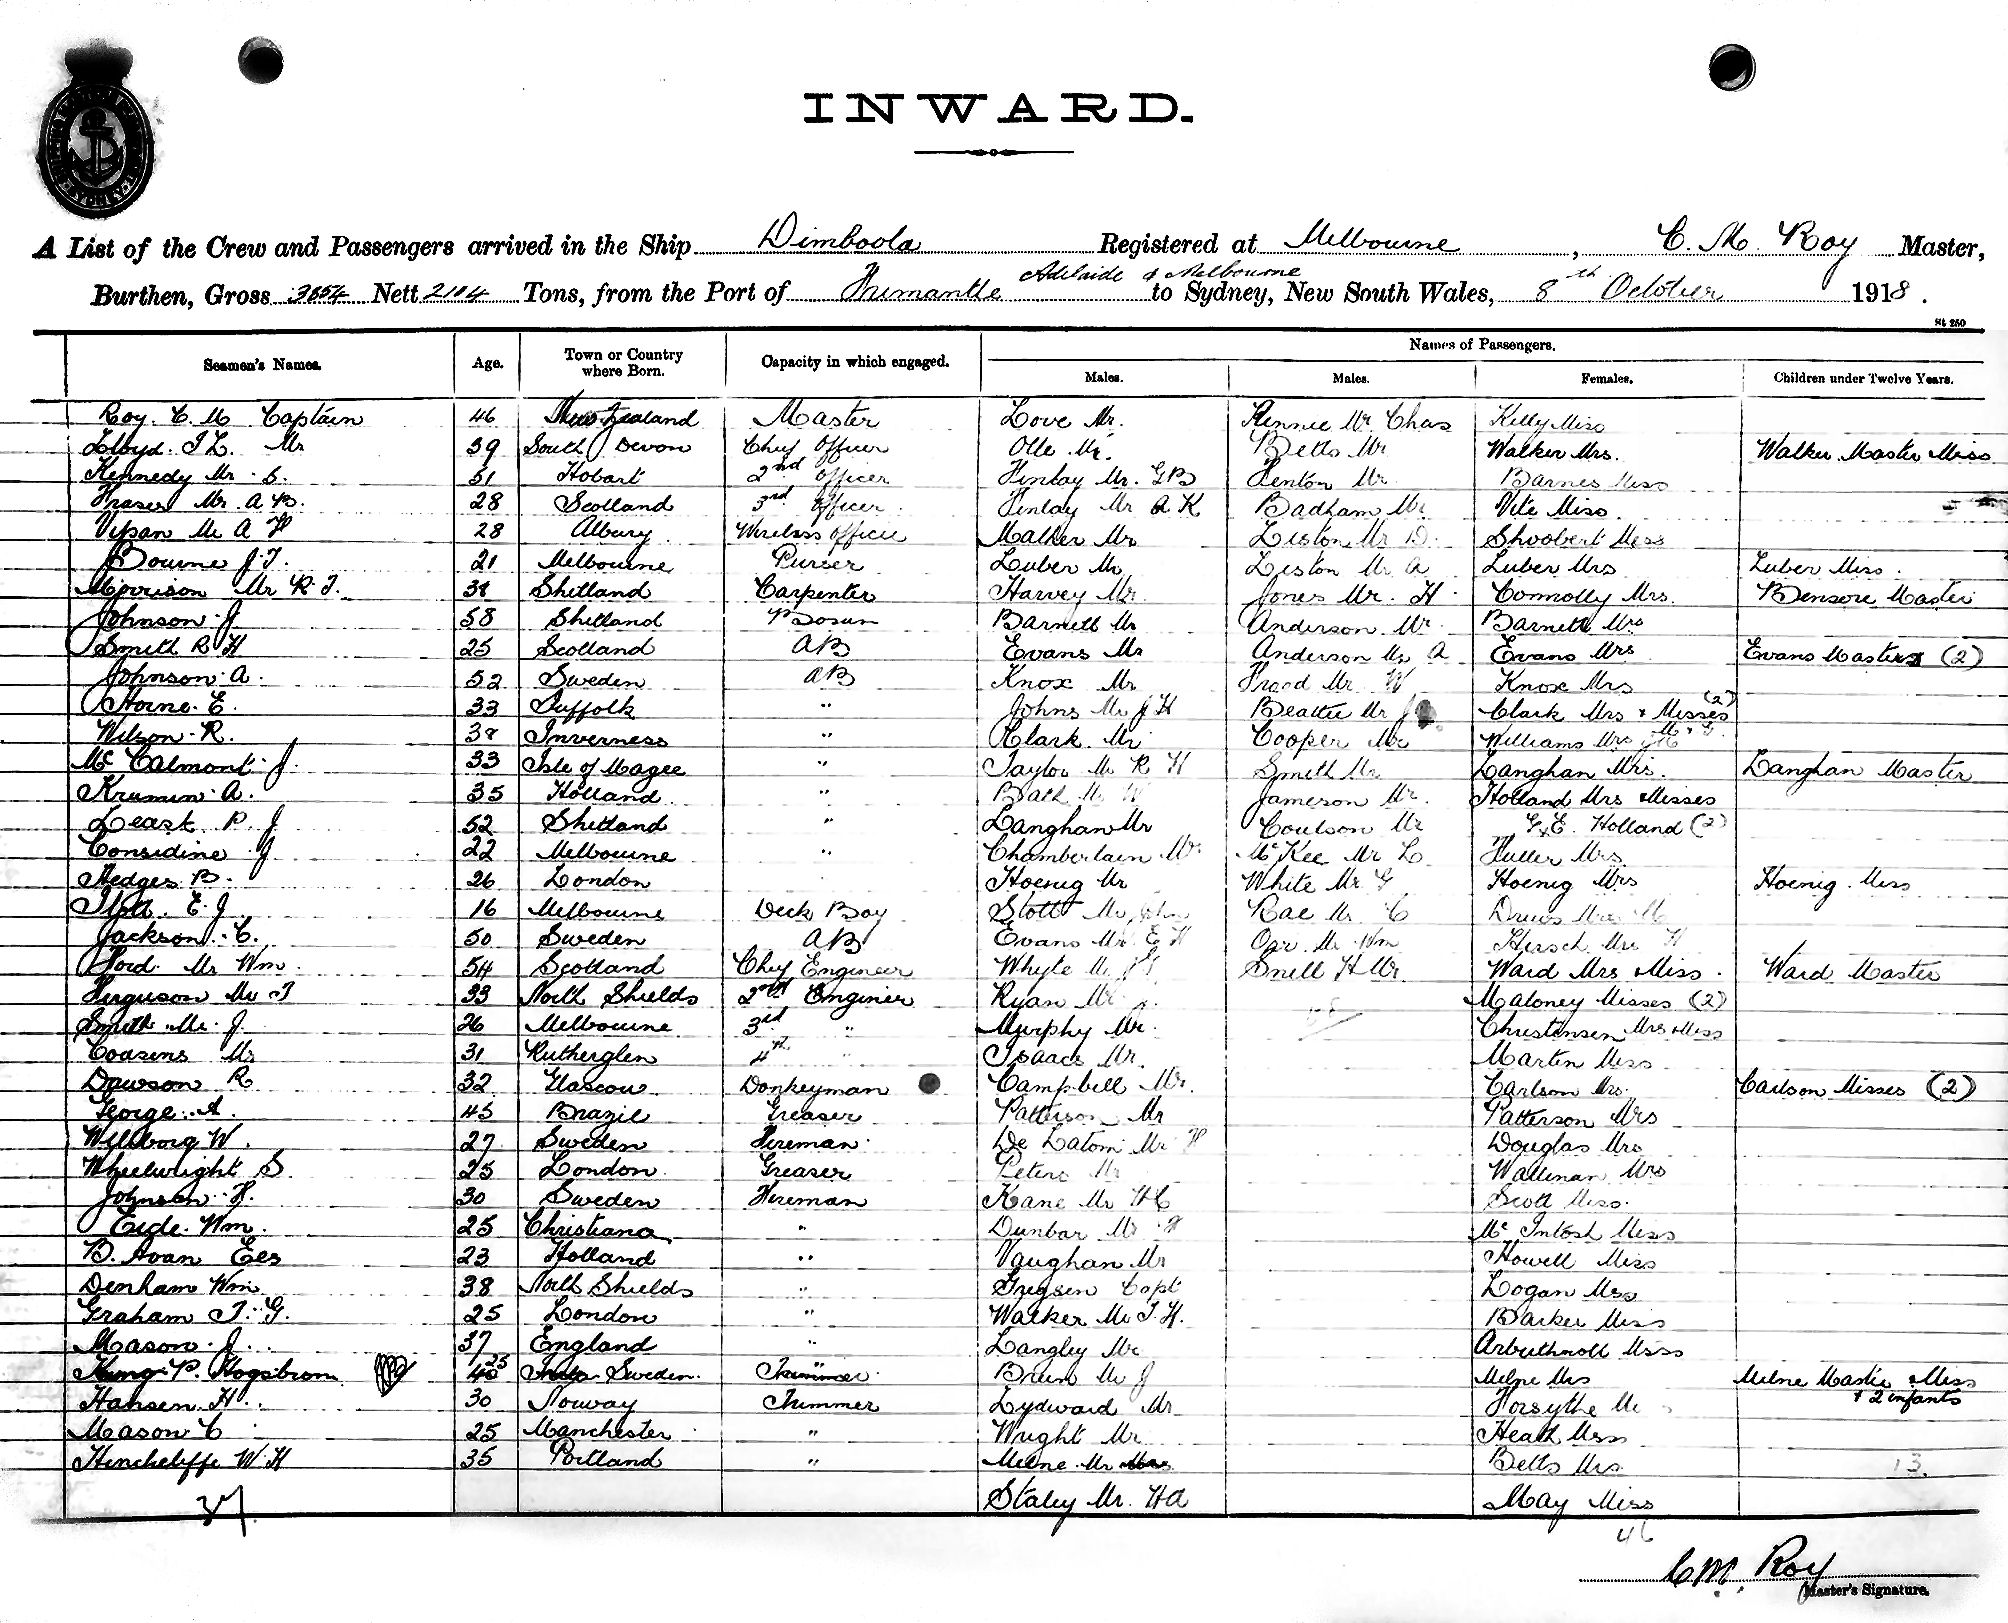 INWARD.
A List of the Crew and Passengers arrived in the Ship Dimboola Registered at Melbourne, C. M. Roy Master,
Adelaide & Melbourne
Burthen, Gross 3854 Nett 2104 Tons, from the Port of Frimantle to Sydney, New South Wales, 8th October 1918.
St 250
Seamen's Names. Age. Town or Country where Born. Capacity in which engaged. Names of Passengers.
Males. Males. Females. Children under Twelve Years.
Roy. C. M Captain 46 New Zealand Master Love Mr. Rennie Mr Chas Kelly Miss
Lloyd. I L. Mr 39 South Devon Chief Officer Olle Mr. Betts Mr Walker Mrs. Walker Master Miss
Kennedy Mr. S. 51 Hobart 2nd Officer Finlay Mr. G B Fenton Mr Barnes Miss
Fraser Mr. A B. 28 Scotland 3rd Officer Finlay Mr A K Badham Mr Vite Miss.
Mr A F 28 Albury Wireless Officer Mather Mr Liston Mr D. Shoobert Miss
Bourne J. T. 21 Melbourne Purser Luber Mr Liston Mr A Luber Mrs Luber Miss.
Morrison Mr R T. 38 Shetland Carpenter Harvey Mr. Jones Mr. H Connolly Mrs. Bensore Master
Johnson J 58 Shetland Bosun Barnett Mr Anderson Mr. Barnett Mrs
Smith R H 25 Scotland AB Evans Mr Anderson Mr A Evans Mrs Evans Masters (2)
Johnson. A. 52 Sweden AB Knox Mr Mr W Knox Mrs
Horne. E. 33 Suffolk " Johns Mr J H Beattie Mr J Clark Mrs & Misses (2)
Wilson. R. 38 Inverness " Clark. Mr Cooper Mr Williams Mrs
McCalmont. J. 33 Isle of Magee " Taylor Mr R H Smith Mr Langhan Mrs. Langhan Master
Krumin. A. 35 Holland " Bath Mr W Jameson Mr. Holland Mrs & Misses
Leask P. J 52 Shetland " Langhan Mr Coulson Mr G & E. Holland (2)
Considine J 22 Melbourne " Chamberlain Mr McKee Mr L. Fuller Mrs.
Hedges B. 26 London Hoenig Mr White Mr G Hoenig Mrs Hoenig. Miss
E. J 16 Melbourne Deck Boy Stott Mr John Rae Mr C Mrs M
Jackson. C. 50 Sweden AB Evans Mr. E H Orr. Mr Wm Hirsch Mrs H
Ford Mr Wm. 54 Scotland Chief Engineer Whyte Mr Snell H Mr. Ward Mrs & Miss. Ward Master
Ferguson Mr T 33 North Shields 2nd Enginer Ryan Mr J. Maloney Misses (2)
Smith Mr. J. 26 Melbourne 3rd " Murphy Mr. Christensen Mrs & Miss
Coasens Mr 31 Rutherglen 4th " Isaacs Mr. Martin Miss
Dawson R 32 Glascow Donkeyman Campbell Mr. Carlson Mrs. Carlson Misses (2)
George. A. 45 Brazil Greaser Patterson Mr Patterson Mrs
Willborg W. 27 Sweden Fireman De Latom Mr H Douglas Mrs
Wheelwright S. 25 London Greaser Peters Mr Mrs
Johnson. H. 30 Sweden Fireman Kane Mr H C Scott Miss.
Eide. Wm. 25 Christiana " Dunbar Mr H McIntosh Miss
B. Avan Ees 23 Holland " Vaughan Mr Howell Miss
Denham Wm 38 North Shields " Gregsen Capt Logan Miss
Graham T. G. 25 London " Walker Mr T. H. Barker Miss
Mason. J. 37 England " Langley Mr Arbuthnott Miss
P. Hogstrom 25 Sweden. Trimmer Mr J Milne Mrs Milne Master & Miss
Hansen. H. 30 Norway Trimmer Lydward Mr Forsythe & 2 infants
Mason C 25 Manchester " Wright Mr Heath Miss
Hinchcliffe W. H 35 Portland " Milne Mr Betts Mrs 13.
37 Staley Mr. H A May Miss
46
C. M. Roy
Master's Signature.